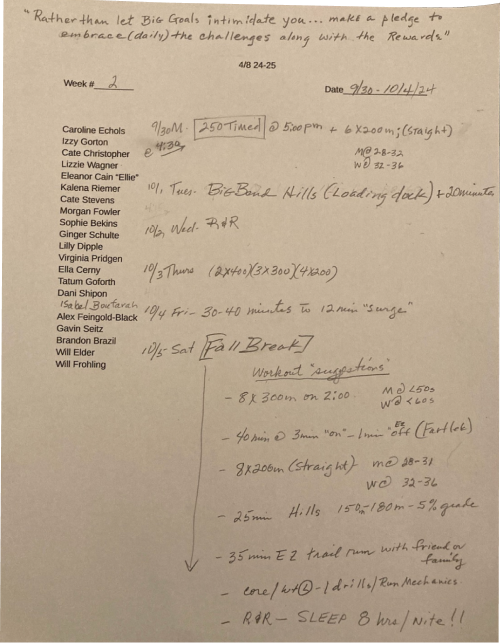 "Rather than let Big Goals intimidate you... make a pledge to
embrace (daily) the challenges along with the Rewards"
4/8 24-25
Week # 2
Date 9/30 - 10/4/24
Caroline Echols
Izzy Gorton
Cate Christopher
Lizzie Wagner
Eleanor Cain "Ellie"
Kalena Riemer
Cate Stevens
Morgan Fowler
Sophie Bekins
Ginger Schulte
Lilly Dipple
Virginia Pridgen
Ella Cerny
Tatum Goforth
Dani Shipon
Isabel Boutarah
Alex Feingold-Black
Gavin Seitz
Brandon Brazil
Will Elder
Will Frohling
9/30 M - 250 Timed @ 5:00pm + 6X200m; (Staight)
@ 4:30
M@ 28-32
W@ 32-36
10/1 Tues - Big Band Hills (Loading dock) + 20 minutes
10/2 Wed - R&R
10/3 Thurs (2X400)(3X300)(4X200)
10/4 Fri - 30-40 minutes to 12 min "surge"
10/5 Sat [Fall Break]
Workout "suggestions"
- 8X300m on 2:00. M@ <50s
W@ <60s
- 40min @ 3min "on" - 1min "off" (Fartlek)
- 8X200m (Straight) - M@ 28-31
W@ 32-36
- 25min Hills 150m-180m - 5% grade
- 35min EZ trail run with friend or
family
- core/wt(L) - / drills / Run Mechanics
- R&R - SLEEP 8 hrs / Nite!!